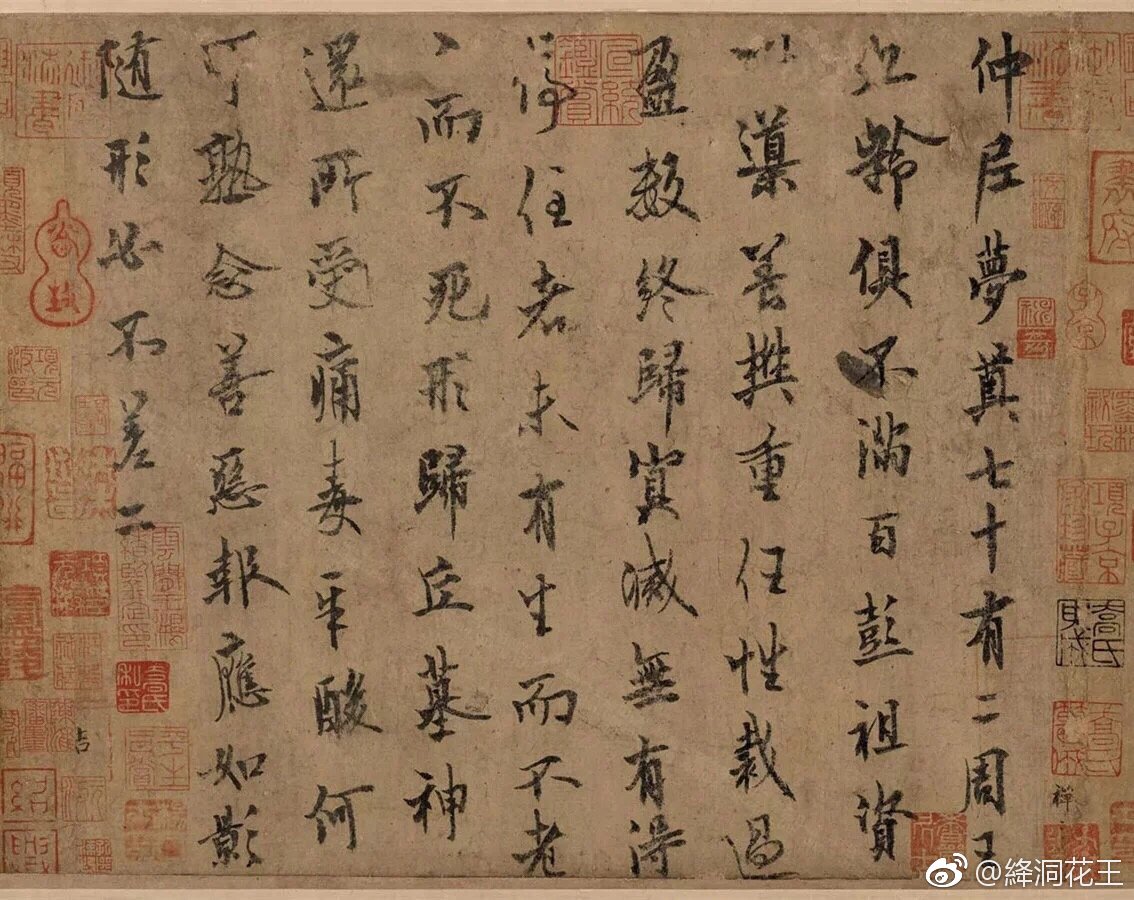 仲尼夢奠七十有二周王
九齡俱不滿百彭祖資
以導養樊重任性裁過
盈數終歸冥滅無有得
停住者未有生而不老
〻而不死形歸丘墓神
還所受痛毒辛酸何
可熟念善惡報應如影
隨形必不差二
禪
吉
@絳洞花王